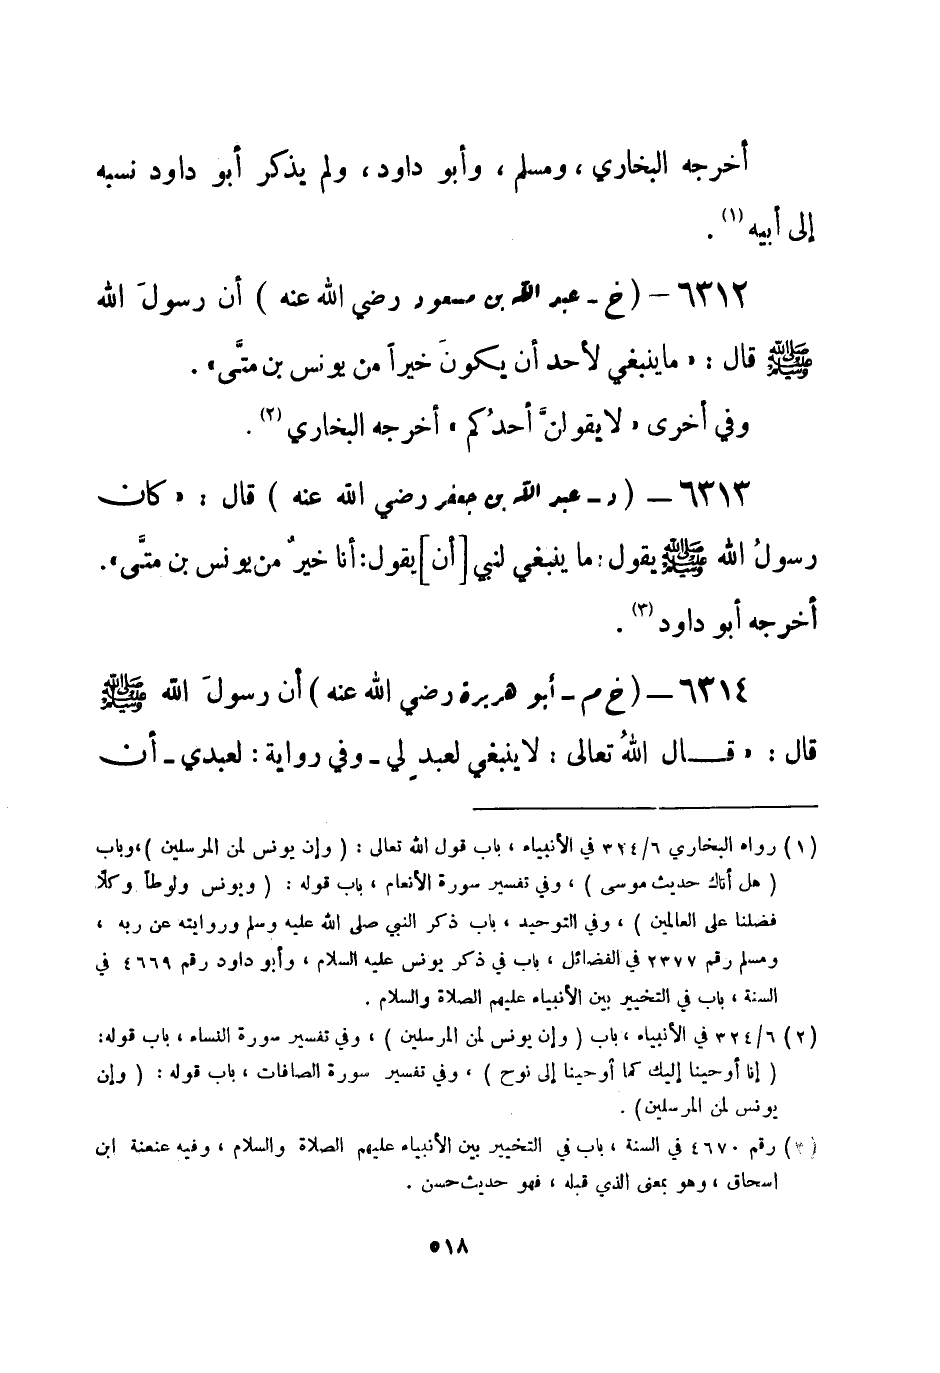 أخرجه البخاري ، ومسلم ، وأبو داود ، ولم يذكر أبو داود نسبه
إلى أبيه (١) .
٦٣١٢ – ( خ – عبد الله بن مسعود رضي الله عنه ) أن رسولَ الله
ﷺ قال : « ماينبغي لأحد أن يكونَ خيراً من يونس بن متَّى » .
وفي أخرى « لايقولنَّ أحدُكم » أخرجه البخاري (٢) .
٦٣١٣ – ( د – عبد الله بن جعفر رضي الله عنه ) قال : « كان
رسولُ الله ﷺ يقول : ما ينبغي لنبي [ أن ] يقول : أنا خيرٌ من يونس بن متَّى » .
أخرجه أبو داود (٣) .
٦٣١٤ – ( خ م – أبو هريرة رضي الله عنه ) أن رسولَ الله ﷺ
قال : « قــال اللهُ تعالى : لاينبغي لعبدٍ لي – وفي رواية : لعبدي – أن
(١) رواه البخاري ٣٢٤/٦ في الأنبياء ، باب قول الله تعالى : ( وإن يونس لمن المرسلين ) ، وباب
( هل أتاك حديث موسى ) ، وفي تفسير سورة الأنعام ، باب قوله : ( ويونس ولوطاً وكلاً
فضلنا على العالمين ) ، وفي التوحيد ، باب ذكر النبي صلى الله عليه وسلم وروايته عن ربه ،
ومسلم رقم ٢٣٧٧ في الفضائل ، باب في ذكر يونس عليه السلام ، وأبو داود رقم ٤٦٦٩ في
السنة ، باب في التخيير بين الأنبياء عليهم الصلاة والسلام .
(٢) ٣٢٤/٦ في الأنبياء ، باب ( وإن يونس لمن المرسلين ) ، وفي تفسير سورة النساء ، باب قوله:
( إنا أوحينا إليك كما أوحينا إلى نوح ) ، وفي تفسير سورة الصافات ، باب قوله : ( وإن
يونس لمن المرسلين) .
(٣) رقم ٤٦٧٠ في السنة ، باب في التخيير بين الأنبياء عليهم الصلاة والسلام ، وفيه عنعنة ابن
اسحاق ، وهو بمعنى الذي قبله ، فهو حديث حسن .
٥١٨